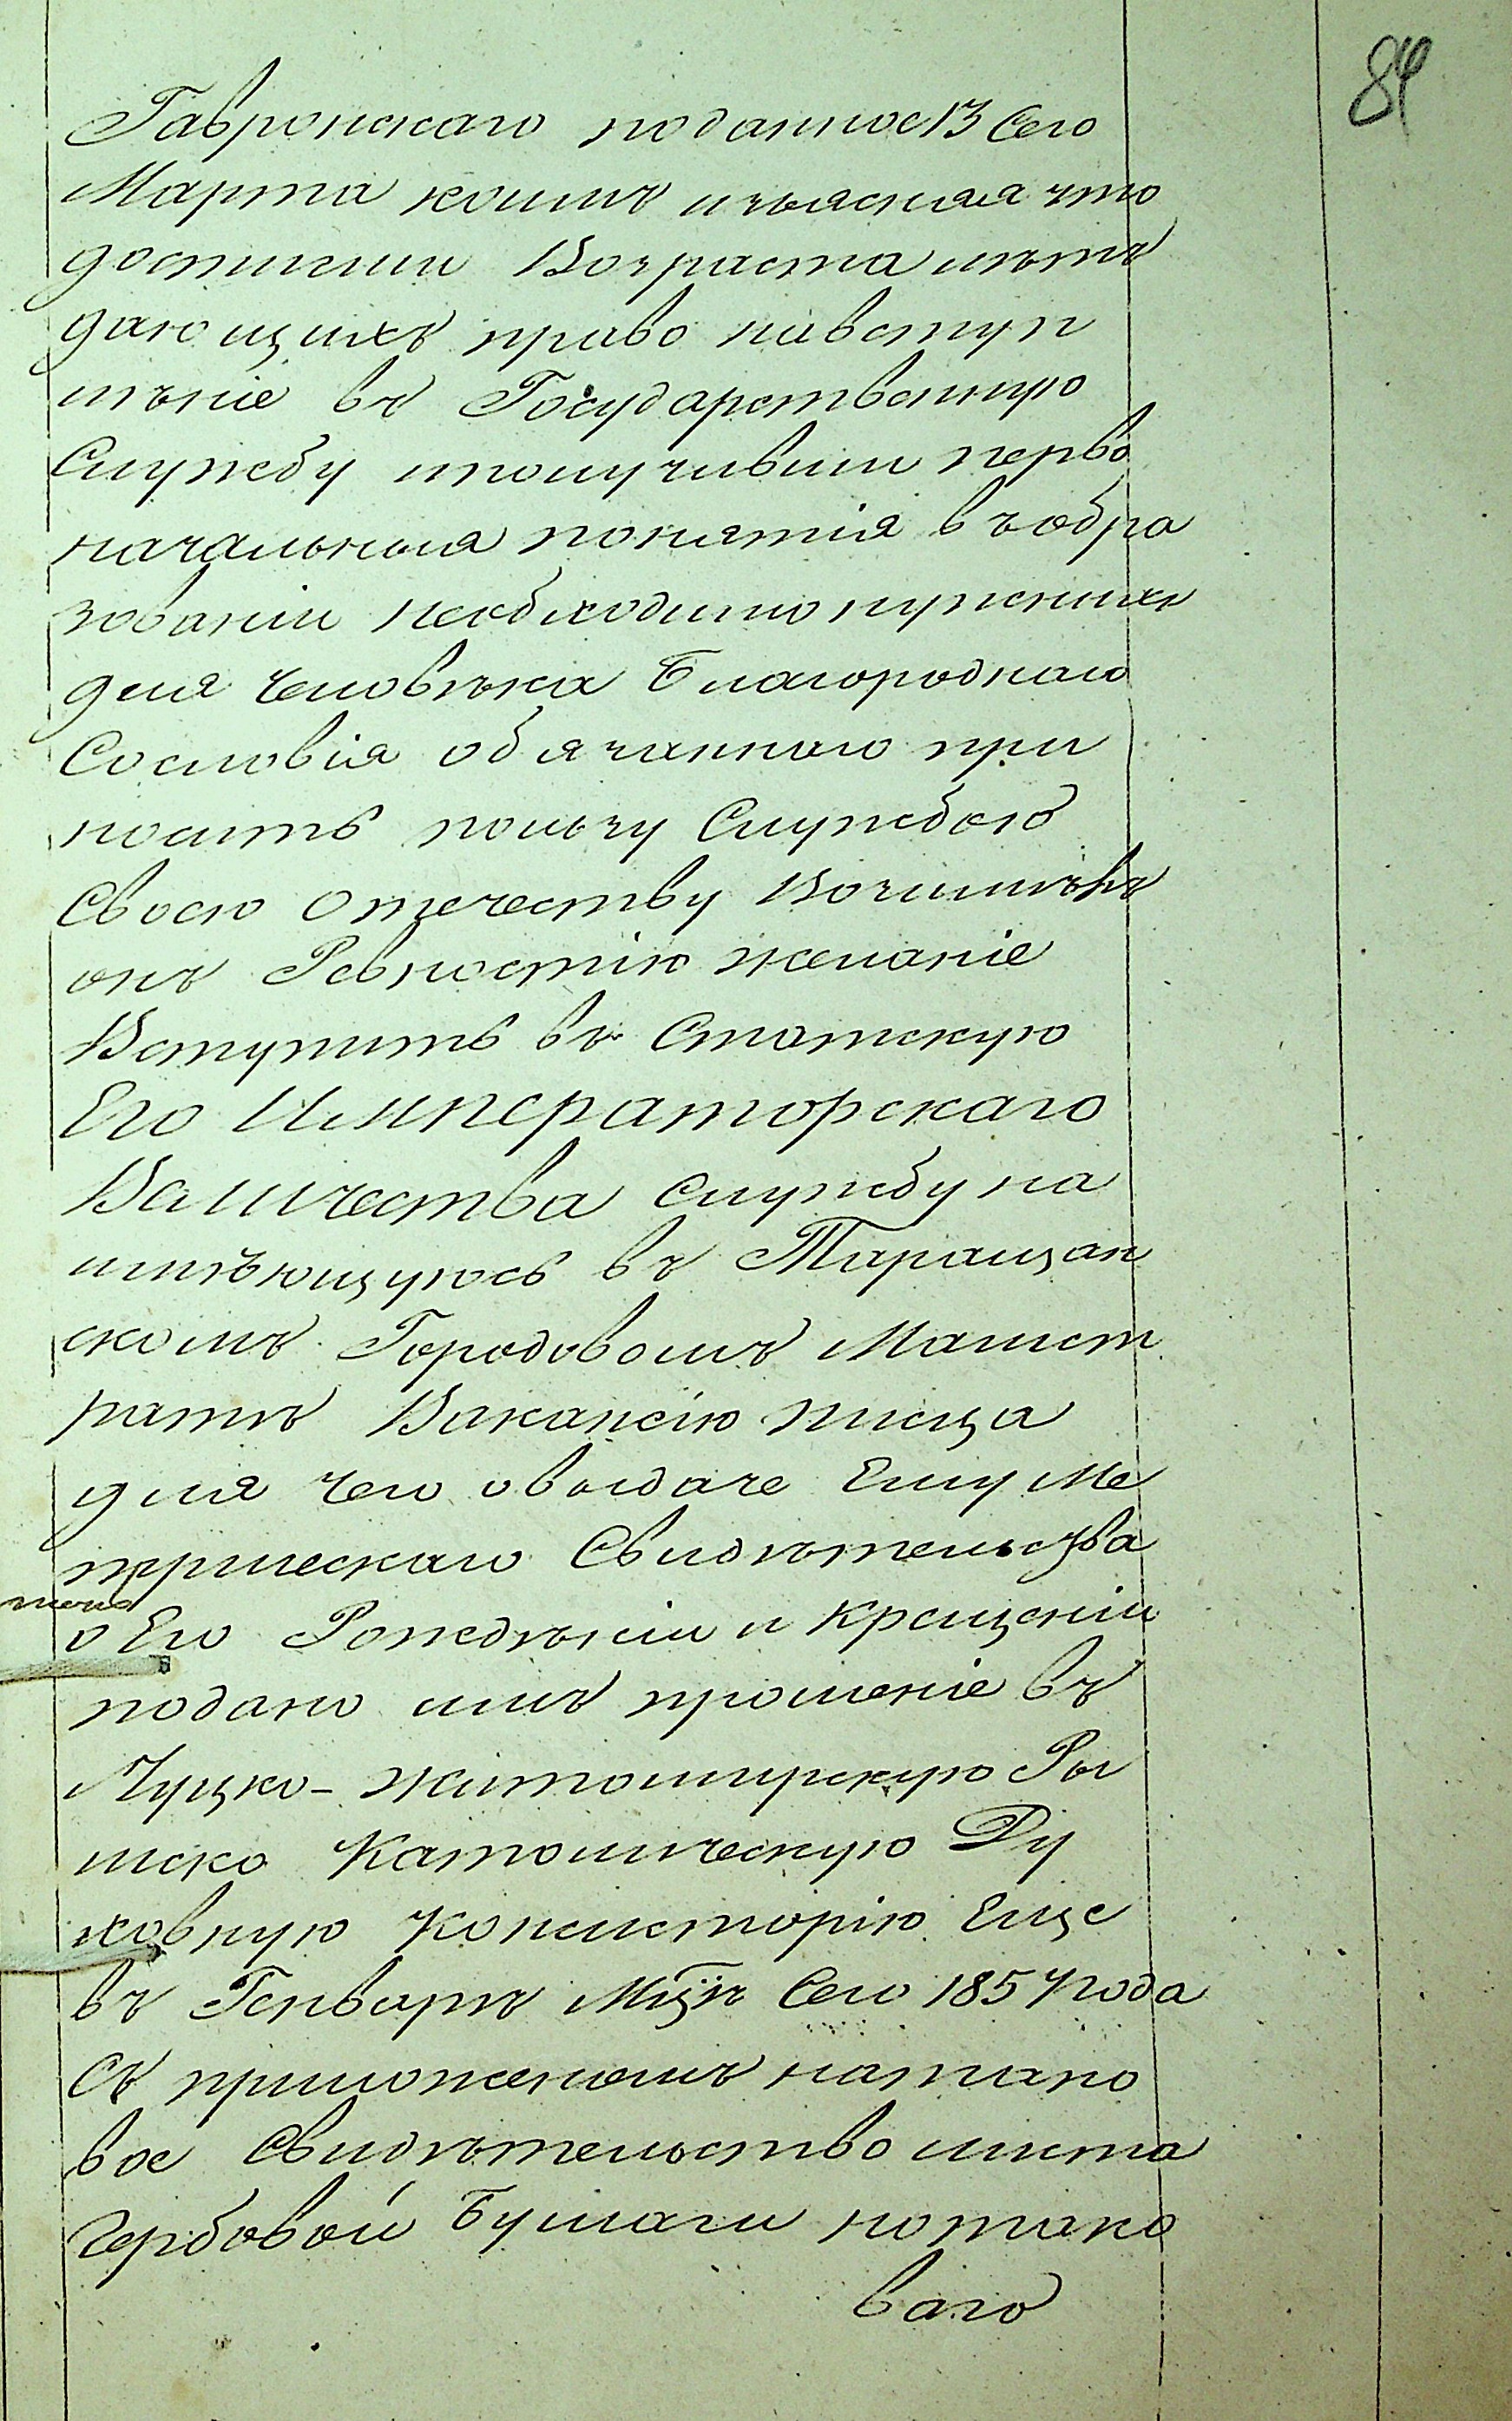 84
Гавронскаго поданное 13 Сего
Марта коимъ изъясняя что
достигши Возраста лѣтъ
дающихъ право навступ
лѣніе въ Государственную
Службу иполучивши перво
начальныя понятія въобра
зованіи необходимо нужныхъ
для Человѣка Благороднаго
Сословія обязаннаго при
носить пользу Службою
Своею Отечеству Возимѣлъ
онъ Ревностію желаніе
Вступить въ Статскую
Его Императорскаго
Величества Службу на
имѣющуюсь въ Таращан
скомъ Городовомъ Магист
ратѣ Вакансію писца
для Чего овыдаче Ему Ме
трическаго Свидѣтельства
о Его Рождѣніи и Крещеніи
подано имъ прошеніе въ
Луцко-Житомирскую Ри
мско Католическую Ду
ховную Консисторію Еще
въ Генварѣ Мцѣ Сего 1857 года
Съ приложеніемъ натако
вое Свидѣтельство листа
Гербовой Бумаги нотако
ваго